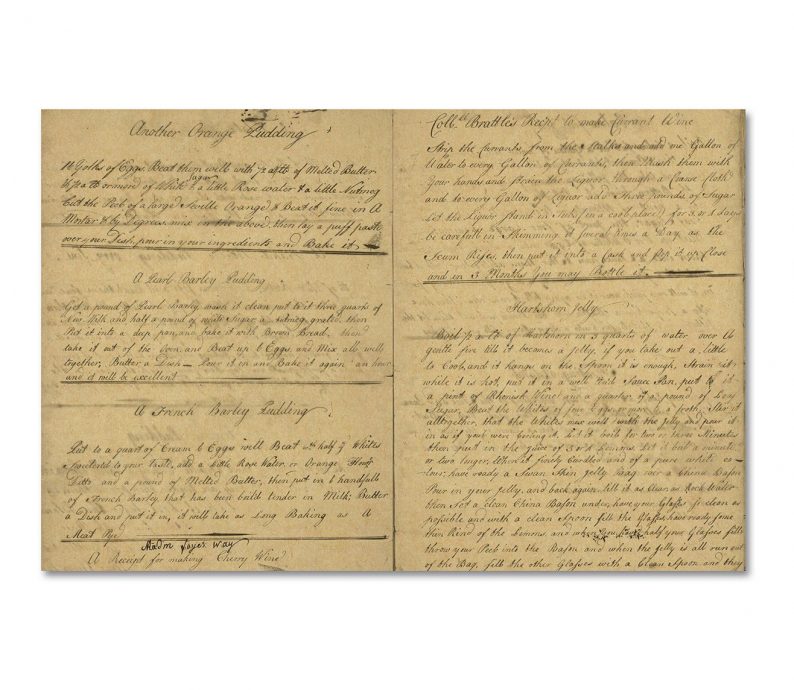 Another Orange Pudding
of Eggs Beat them well with of Melted Butter
of White & a little Rose water & a little Nutmeg
Cut the Peel of a large Seville Orange & Beat it fine in A
Mortar & by Degrees mix in the above, then lay a puff paste
over your Dish, pour in your ingredients and Bake it
A Pearl Barley Pudding
Get a pound of Pearl Barley wash it clean put to it three quarts of
New Milk and half a pound of white Sugar a Nutmeg grated, then
Put it into a deep pan, and bake it with Brown Bread, then
take it out of the Oven, and Beat up 6 Eggs, and Mix all well
together, Butter a Dish — Pour it in and Bake it again an hour
and it will be excellent
A French Barley Pudding
Put to a quart of Cream 6 Eggs well Beat wth half ye Whites
sweetend to your taste, add a little Rose Water, or Orange Flowr
Ditto and a pound of Melted Butter, then put in 6 handfulls
of French Barley, that has been boild tender in Milk; Butter
a Dish and put it in, it will take as Long Baking as A
Meat Pye
Madm Sayers way
A Receipt for making Cherry Wine
Collo. Brattle's Receipt to make Currant Wine
Strip the Currants from the Stalks and add one Gallon of
Water to every Gallon of Currants, then Mash them with
Your hands and Strain the Liquor through a Coarse Cloth
and to every Gallon of Liquor add Three Pounds of Sugar
Let the Liquor stand in Tubs (in a cool place) for 3 or 4 days
be carefull in Skimming it several times a Day as the
Scum Rises, then put it into a Cask and Stop it up Close
and in 3 Months You may Bottle it
Hartshorn Jelly
Boil of Hartshorn in 3 quarts of water over A
gentle fire till it becomes a jelly, if you take out a little
to Cool, and it hangs on the Spoon it is enough, Strain it
while it is hot, put it in a well Sauce Pan, put to it
a pint of Rhenish Wine and a quarter of a pound of Loaf
Sugar, Beat the Whites of four Eggs or more to a froth, Stir it
altogether, that the Whites mix well with the jelly and pour it
in as if your were Cooling it. Let it boil for two or three Minutes
then put in the juice of 3 or 4 Lemons Let it boil a minute
or two longer, When it finely Curdled and of a pure white co-
lour, have ready a Swan Skin jelly bag over a China Bason
Pour in your jelly, and back again, till it as Clear as Rock Water
then Set a clean China Bason under, have your Glasses as clean as
possible and with a clean Spoon fill the Glasses have ready some
thin Rind of the Lemons, and when half your Glasses fill'd
throw your Peel into the Bason and when the jelly is all run out
of the Bag, fill the other Glasses with a Clean Spoon and they